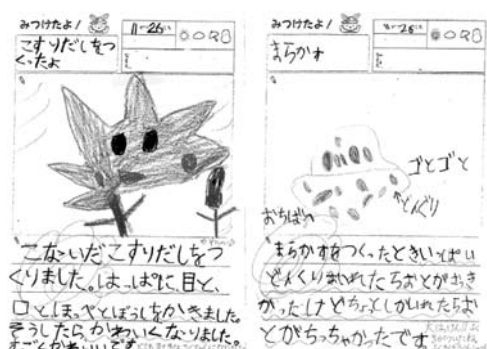 みつけたよ!
11がつ26にち
こすりだしをつ
くったよ
こないだこすりだしをつ
くりました。はっぱに、目と、
口と、ほっぺとぼうしをかきました。
そうしたら、かわいくなりました。
すごくかわいいです
みつけたよ!
28
まらかす
ゴとゴと
どんぐり
おちばい
まらかすをつくったときいっぱい
どんぐりおいれたらおとがおき
かったけどちょっとしかいれたらお
とがちっちゃかったです